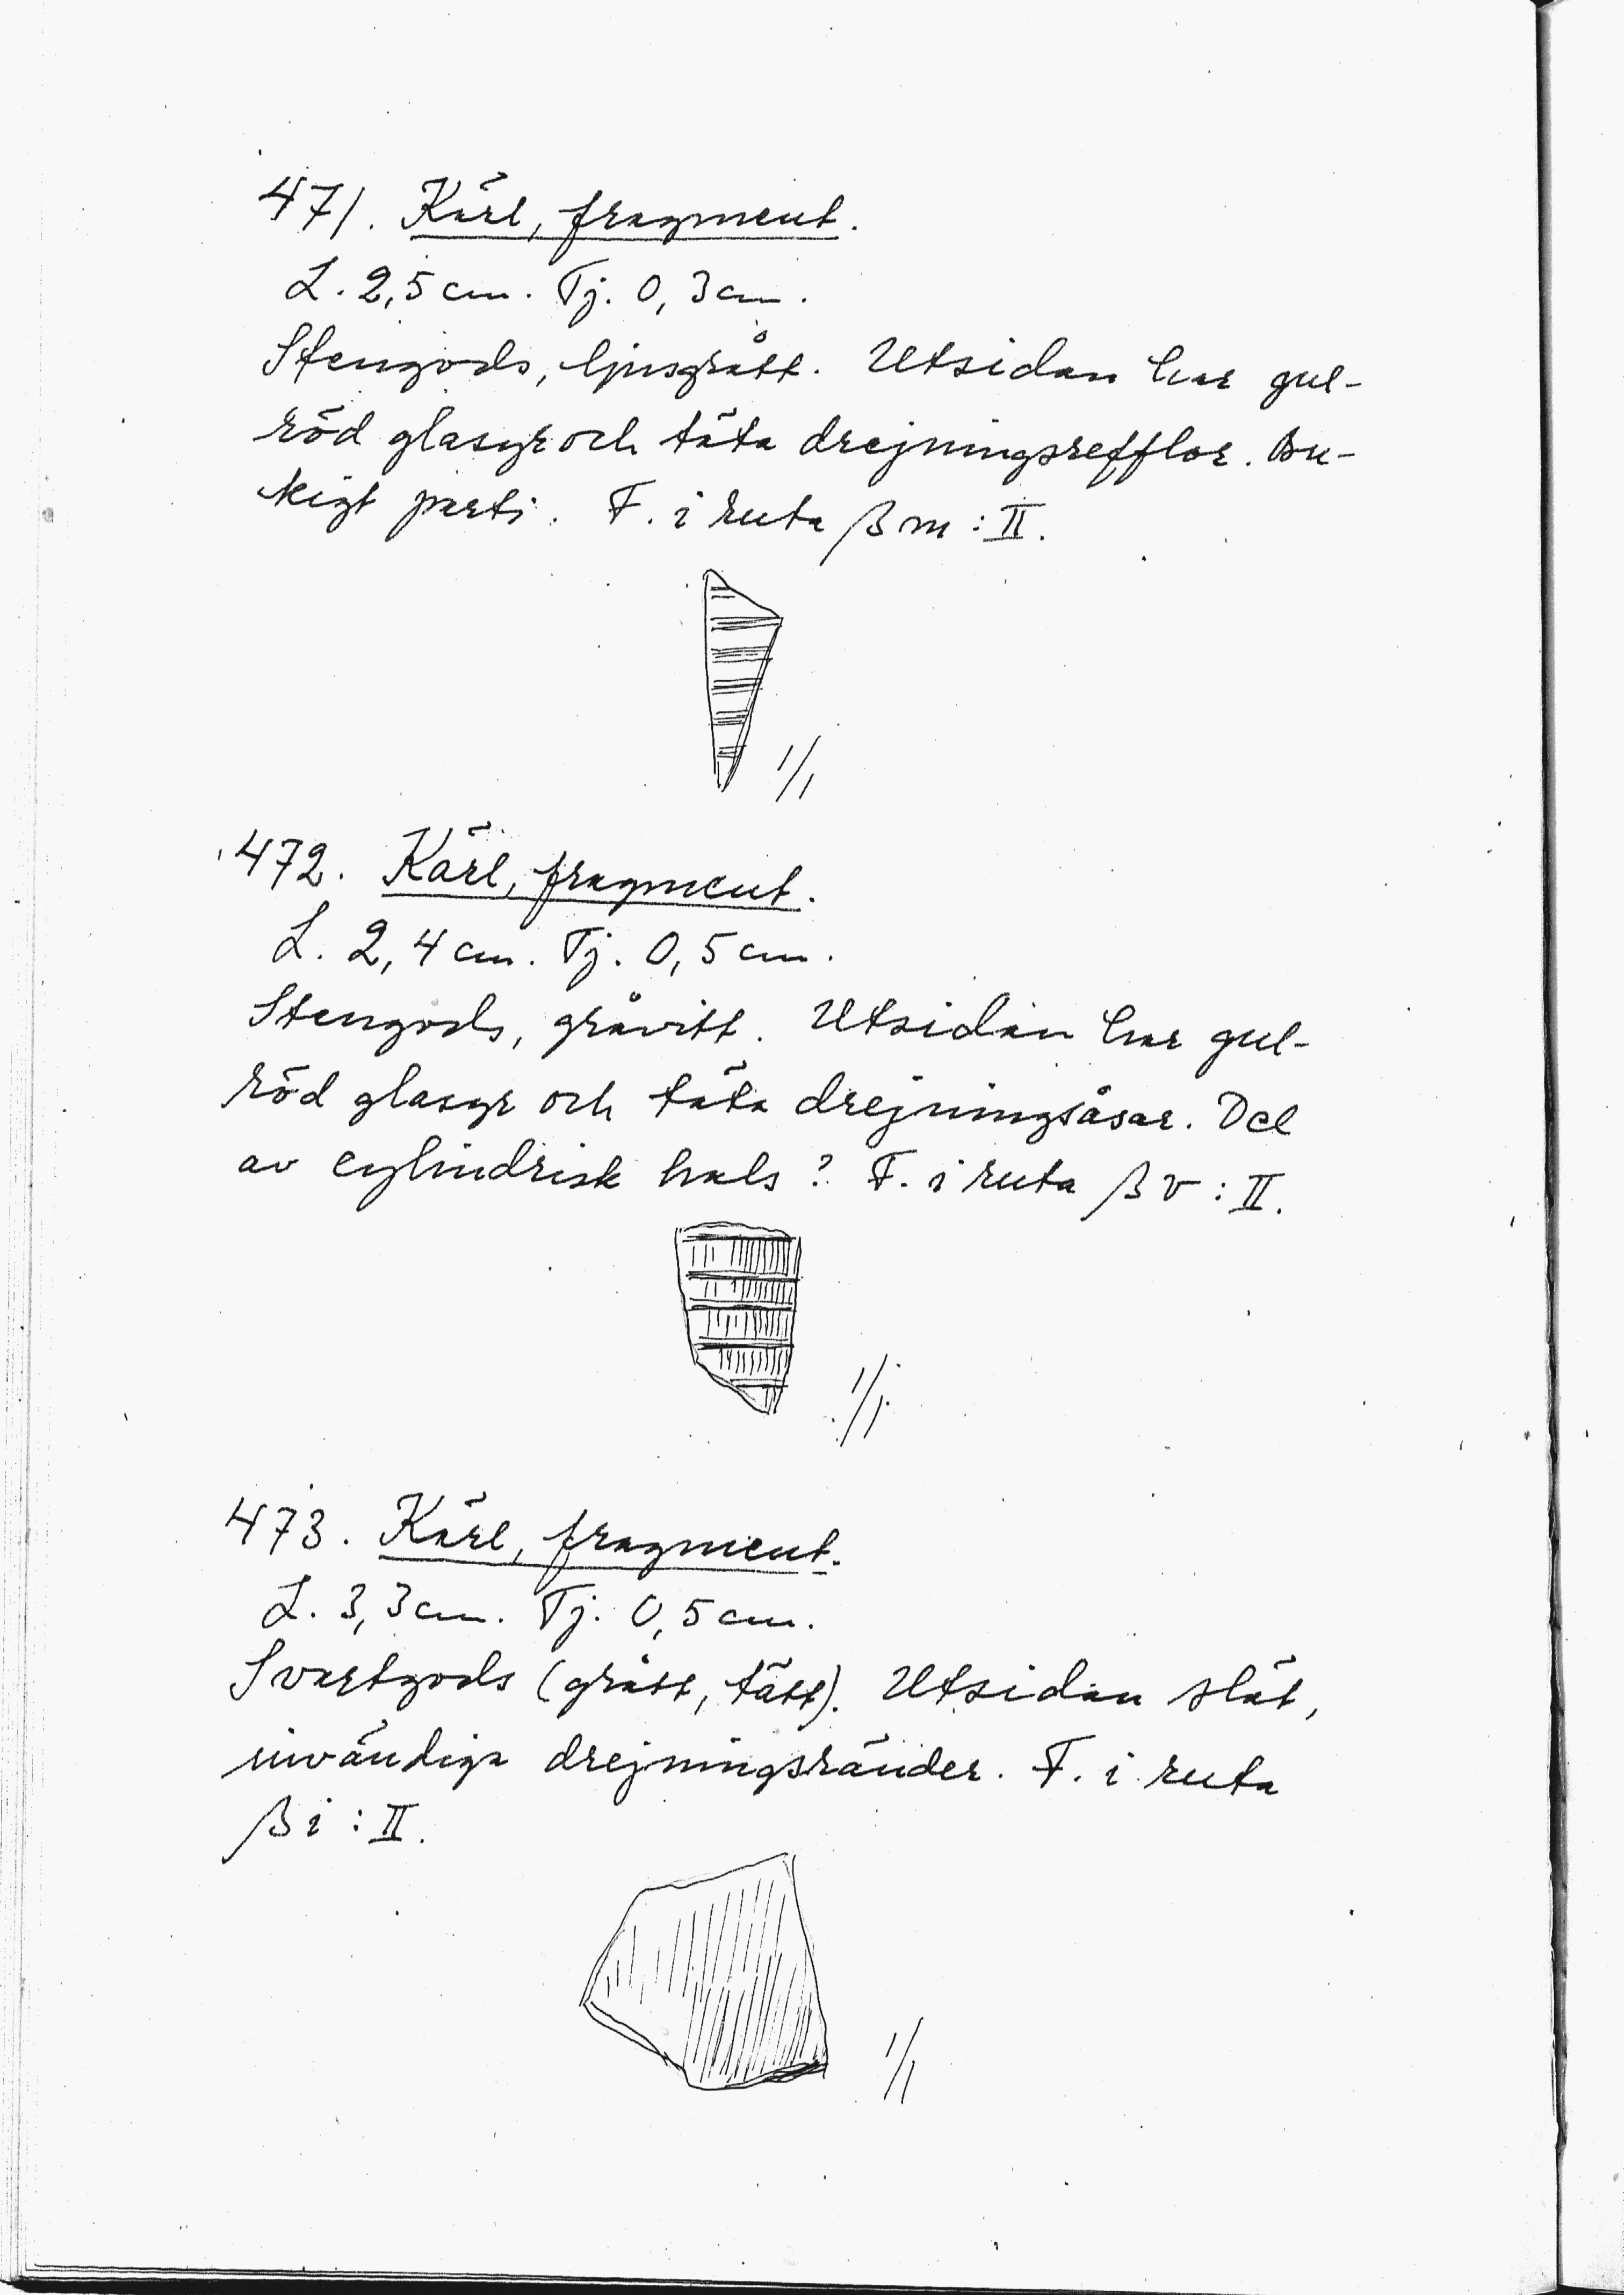 471. Kärl, fragment.
L. 2,5 cm. Tj. 0,3 cm.
Stengods, ljusgrått. Utsidan har gul-
röd glasyr och täta drejningsrefflor. Bu-
kigt parti. F. i ruta β m : II.
1/1
472. Kärl, fragment.
L. 2,4 cm. Tj. 0,5 cm.
Stengods, gråvitt. Utsidan har gul-
röd glasyr och täta drejningsåsar. Del
av cylindrisk hals? F. i ruta β v : II.
1/1
473. Kärl, fragment.
L. 3,3 cm. Tj. 0,5 cm.
Svartgods (grått, tätt). Utsidan slät,
invändiga drejningsränder. F. i ruta
β i : II.
1/1